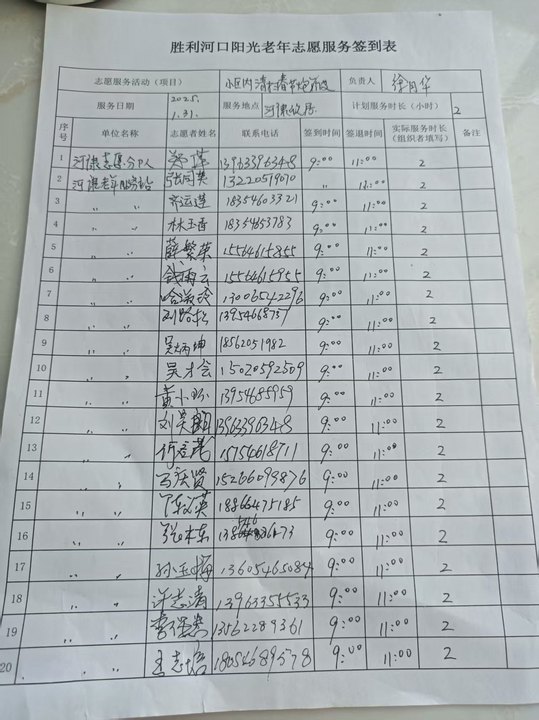 胜利河口阳光老年志愿服务签到表
志愿服务活动（项目） 小区内清扫春节炮 负责人 徐月华
服务日期 2025.1.31. 服务地点 河康 计划服务时长（小时） 2
序号 单位名称 志愿者姓名 联系电话 签到时间 签退时间 实际服务时长（组织者填写） 备注
1 河康志愿 13963396348 9:00 11:00 2
2 河康老年服务站 张同英 13220519070 〃 11:00 2
3 〃 〃 齐运莲 18354603321 9:00 11:00 2
4 〃 〃 林玉香 18354853783 9:00 11:00 2
5 〃 〃 薛繁荣 15564615855 9:00 11:00 2
6 〃 〃 钱雨云 15564615955 9:00 11:00 2
7 〃 〃 哈淑玲 13006542296 9:00 11:00 2
8 〃 〃 刘路松 1395466875 9:00 11:00 2
9 〃 〃 吴炳坤 18562051982 9:00 11:00 2
10 〃 〃 吴才会 15020592509 9:00 11:00 2
11 〃 〃 黄小 13954685959 9:00 11:00 2
12 〃 〃 刘昊鹏 13963396348 9:00 11:00 2
13 〃 〃 15754618711 9:00 11:00 2
14 〃 〃 马庆贤 15266093876 9:00 11:00 2
15 〃 〃 英 18866475185 9:00 11:00 2
16 〃 〃 张林东 9:00 11:00 2
17 〃 〃 孙玉梅 13605465084 9:00 11:00 2
18 〃 〃 许志清 13963355533 9:00 11:00 2
19 〃 〃 13562289361 9:00 11:00 2
20 〃 〃 王志培 18054689578 9:00 11:00 2